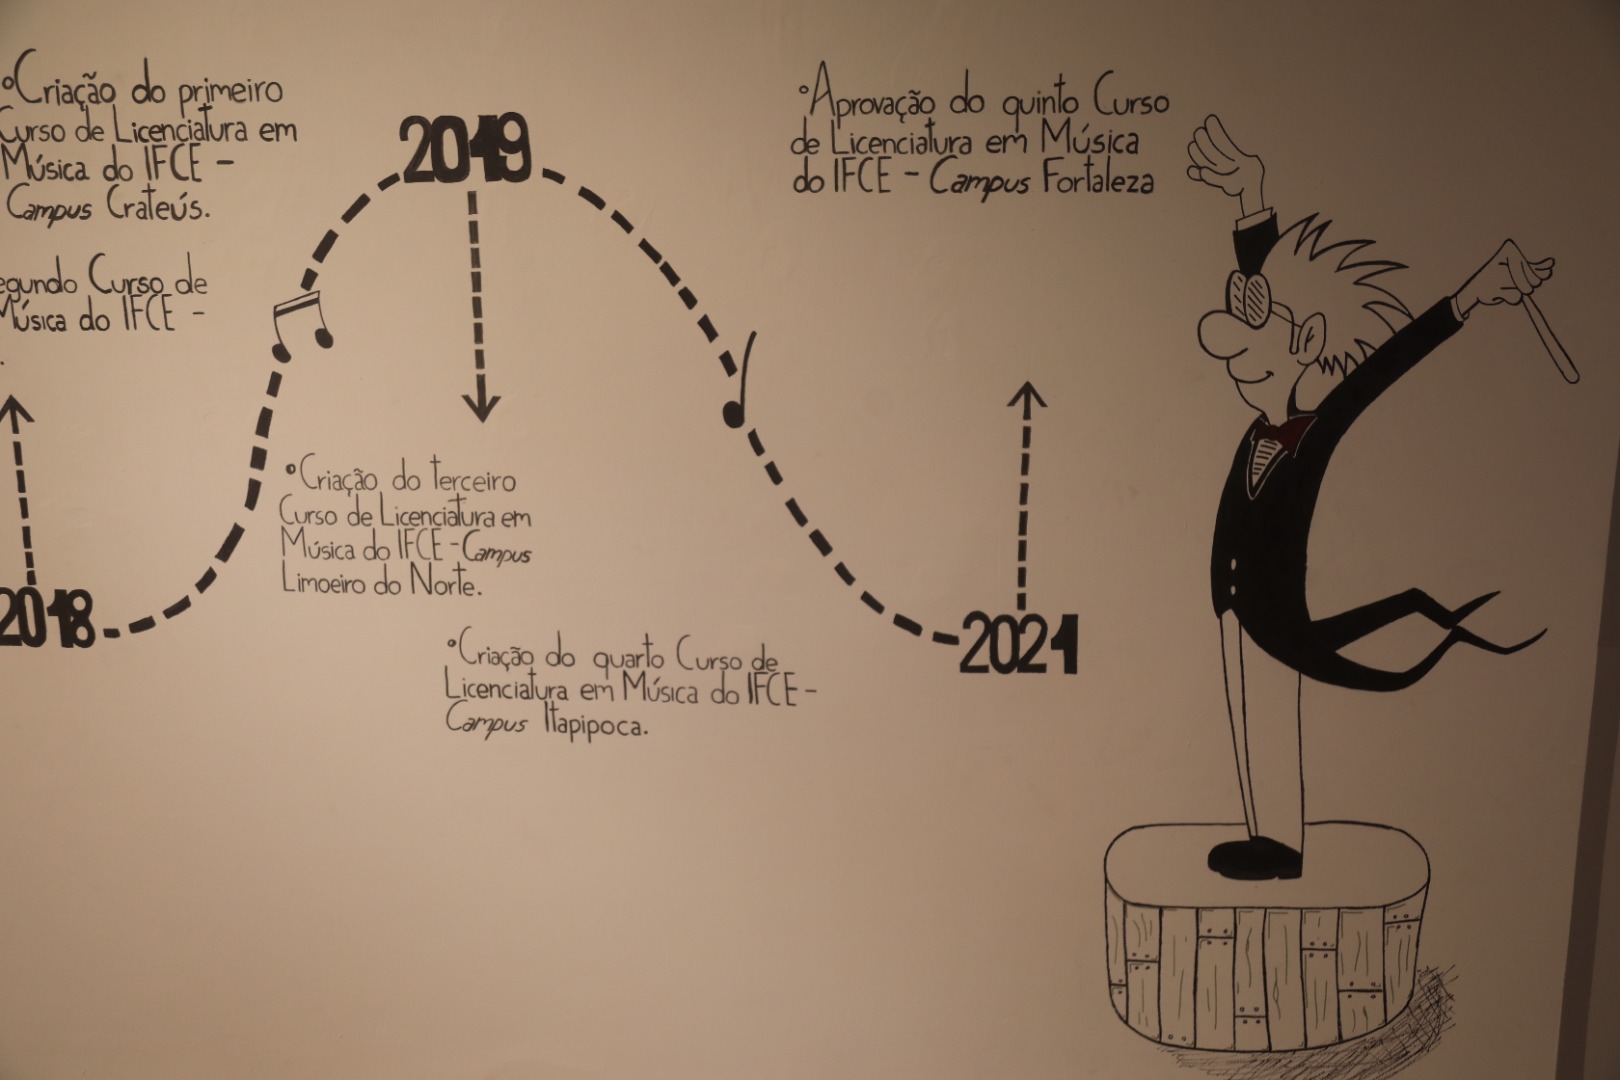 °Criação do primeiro
Curso de Licenciatura em
Música do IFCE -
Campus Crateús.
Curso de
Música do IFCE -
.
2018
2019
°Criação do terceiro
Curso de Licenciatura em
Música do IFCE - Campus
Limoeiro do Norte.
°Criação do quarto Curso de
Licenciatura em Música do IFCE -
Campus Itapipoca.
°Aprovação do quinto Curso
de Licenciatura em Música
do IFCE - Campus Fortaleza
2021